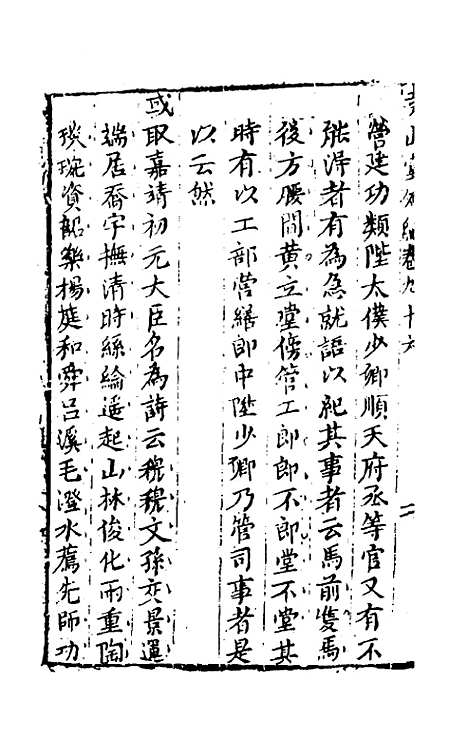 堯山堂外紀卷九十六 二
營建功類陞太僕少卿順天府丞等官又有不
能得者有為急就語以紀其事者云馬前雙馬
後方腰間黃立堂傍管工郎郎不郎堂不堂其
時有以工部營繕郎中陞少卿乃管司事者是
以云然
或取嘉靖初元大臣名為詩云穆穆文孫交景運
端居喬宇撫清時絲綸遥起山林俊化雨重陶
琰琬資韶樂楊庭和舜呂溪毛澄水薦先師功